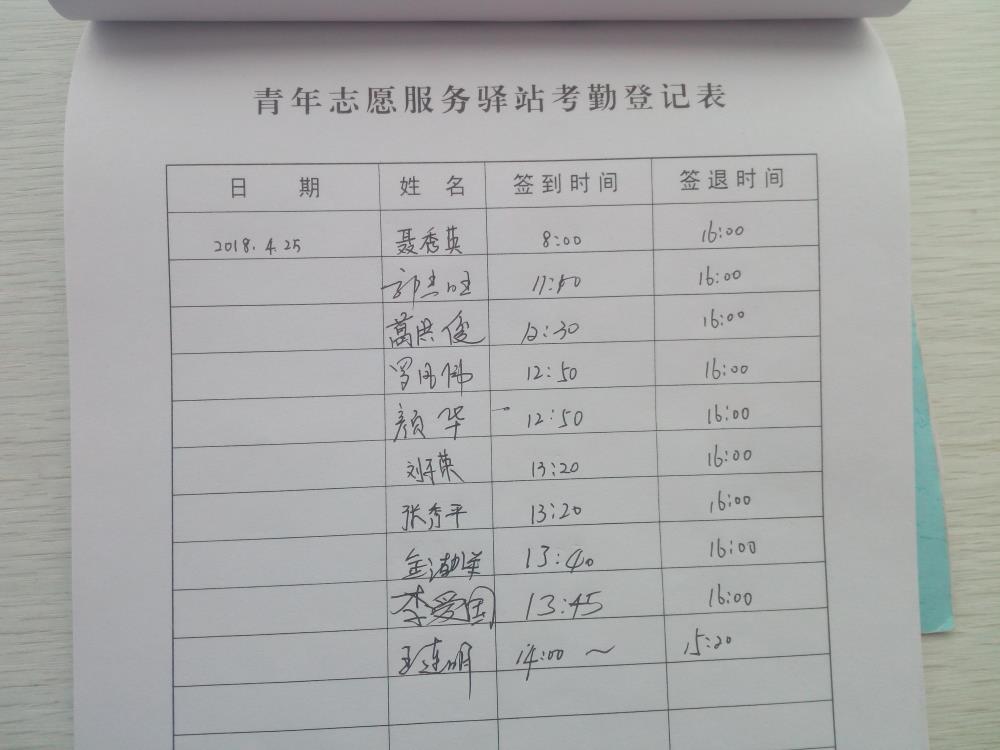 青年志愿服务驿站考勤登记表
日 期 姓 名 签到时间 签退时间
2018.4.25 聂秀英 8:00 16:00
16:00
萬洪俊 12:30 16:00
12:50 16:00
颜华 12:50 16:00
刘平英 13:20 16:00
张秀平 13:20 16:00
13:40 16:00
李爱国 13:45 16:00
王连明 14:00 ~ 15:20